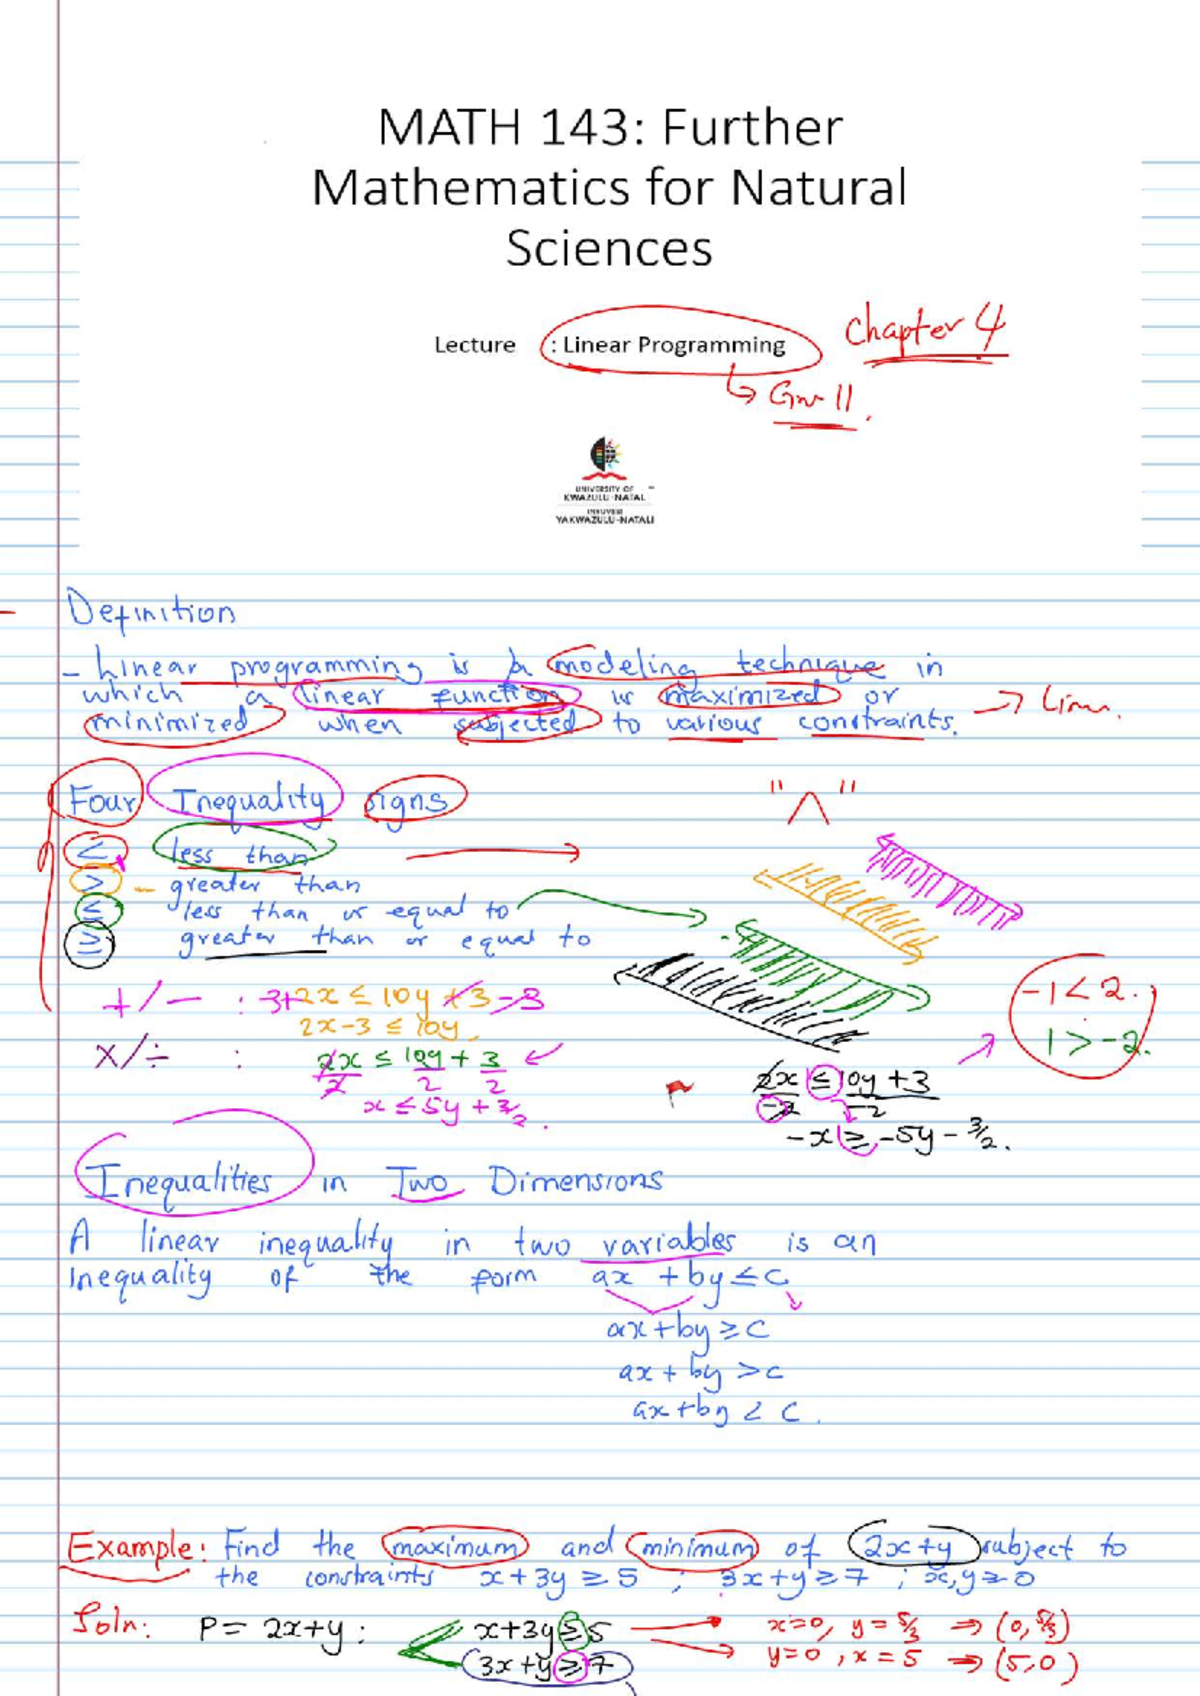 MATH 143: Further
Mathematics for Natural
Sciences
Lecture : Linear Programming
Chapter 4
↳ Gr 11.
UNIVERSITY OF
KWAZULU-NATAL
INYUVESI
YAKWAZULU-NATALI
Definition
- Linear programming is a modeling technique in
which a linear function is maximized or
minimized when subjected to various constraints.
→
Four Inequality signs
"Λ"
< less than
> - greater than
≤ less than or equal to
≥ greater than or equal to
+/- : 3+2x ≤ 10y + 3 - 3
2x-3 ≤ 10y
-1 < 2.
1 > -2.
x/÷ : 2x/2 ≤ 10y/2 + 3/2
x ≤ 5y + 3/2.
2x/-2 ≤ 10y+3/-2
-x ≥ -5y - 3/2.
Inequalities in Two Dimensions
A linear inequality in two variables is an
Inequality of the form ax + by ≤ c
ax + by ≥ c
ax + by > c
ax + by < c.
Example: Find the maximum and minimum of 2x+y subject to
the constraints x+3y ≥ 5 ; 3x+y ≥ 7 ; x,y ≥ 0
Soln: P = 2x+y : x+3y ≥ 5 → x=0, y = 5/3 ⇒ (0, 5/3)
3x+y ≥ 7 y=0, x = 5 ⇒ (5,0)